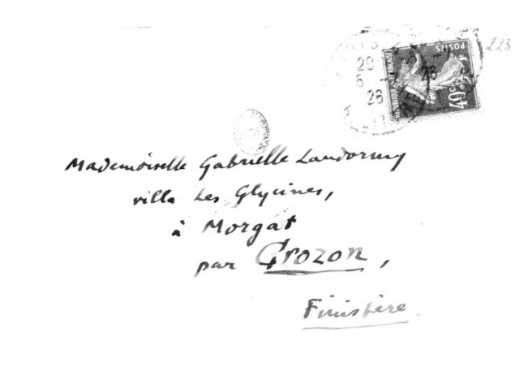 223
20
28
28
POSTES
40c
Mademoiselle Gabrielle Landormy
villa Les Glycines,
à Morgat
par Crozon,
Finistère